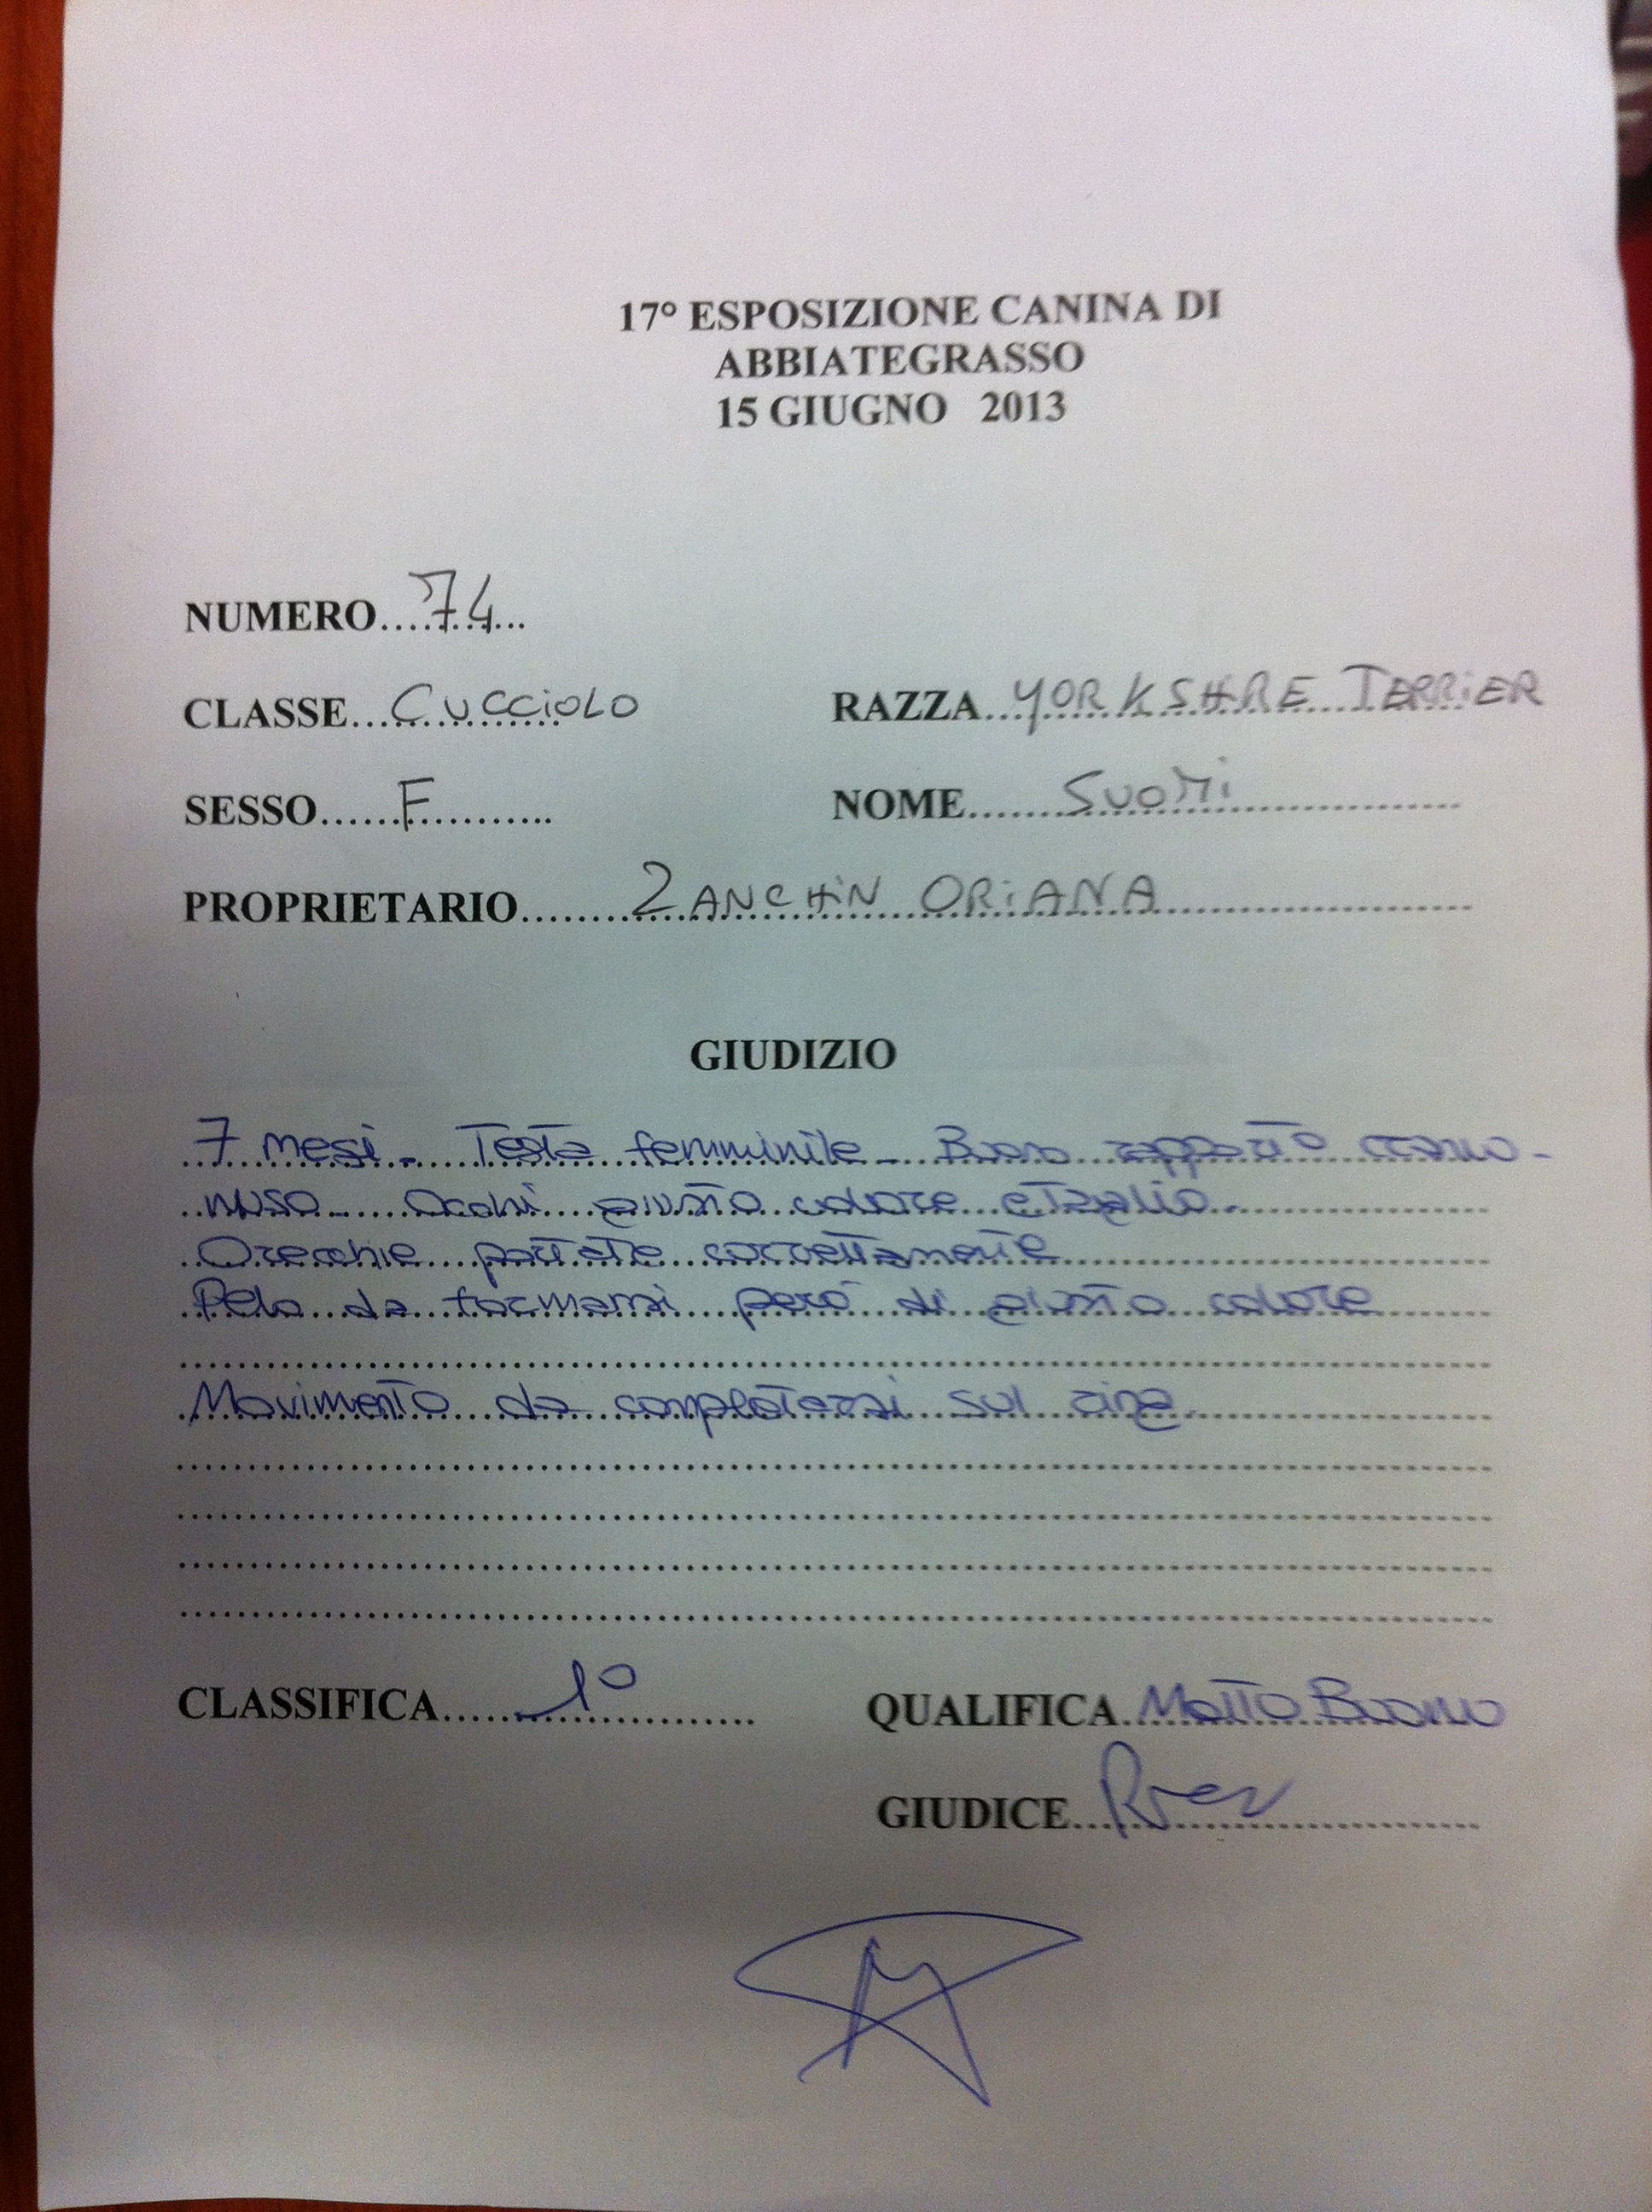 17° ESPOSIZIONE CANINA DI
ABBIATEGRASSO
15 GIUGNO 2013
NUMERO....74...
CLASSE...CUCCiOLO RAZZA...YORKSHIRE TERRiER
SESSO......F.......... NOME.......SUOMi
PROPRIETARIO........ZANCHiN ORiANA
GIUDIZIO
7 mesi - Testa femminile - Buon rapporto cranio -
muso - Occhi giusto colore e Taglio.
Orecchie portate correttamente
Pelo da formarsi però di giusto colore
Movimento da completarsi sul ring
CLASSIFICA......1° QUALIFICA..Molto Buono
GIUDICE...